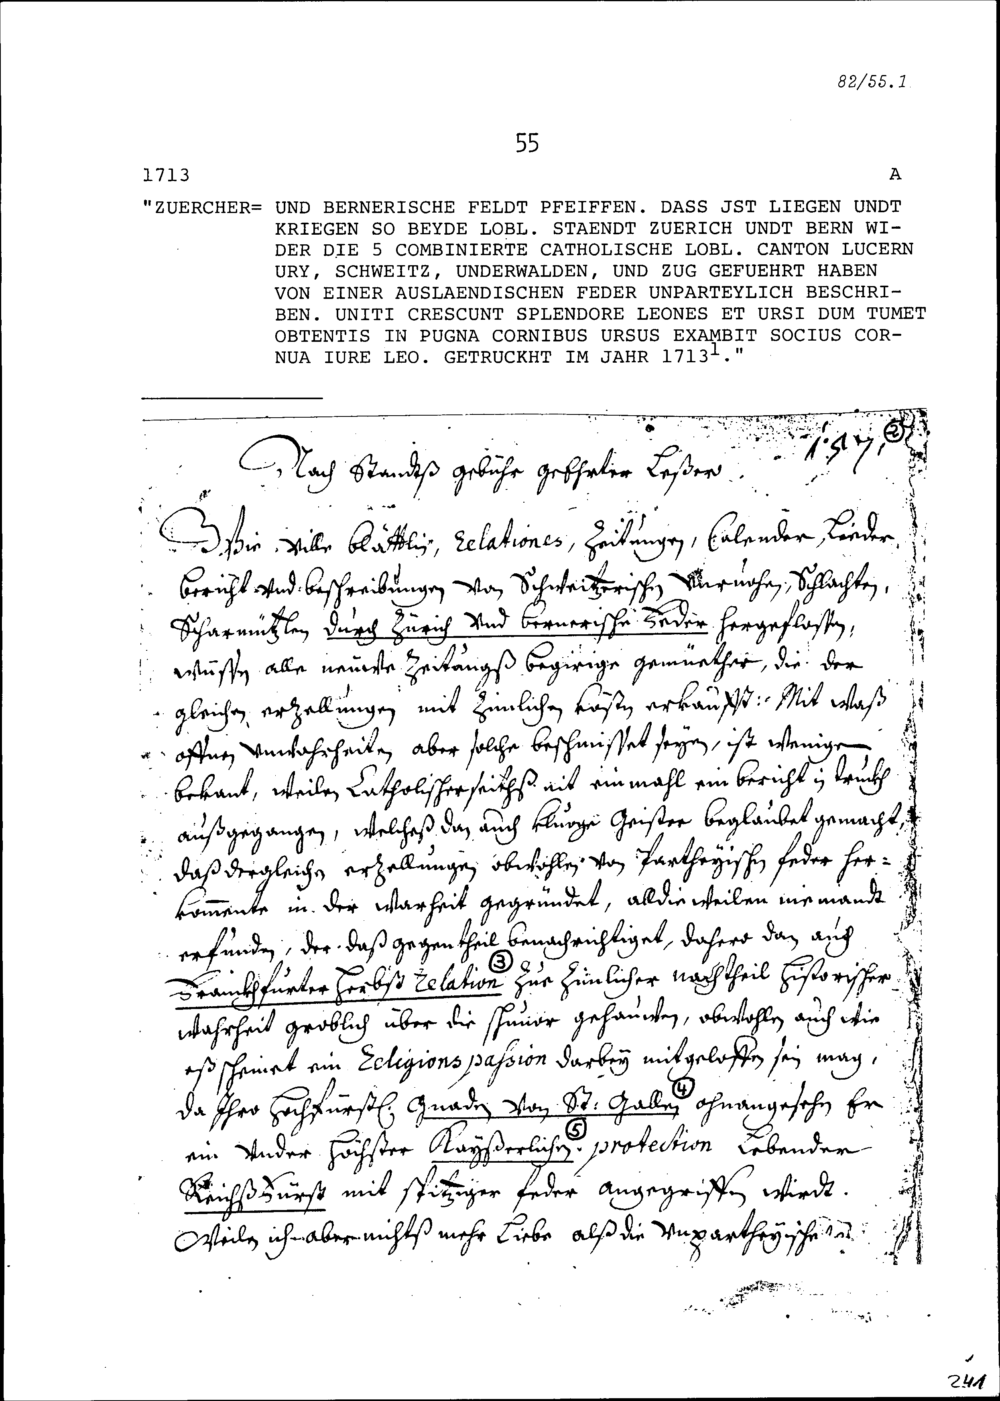 82/55.1
55
1713 A
"ZUERCHER= UND BERNERISCHE FELDT PFEIFFEN. DASS JST LIEGEN UNDT
KRIEGEN SO BEYDE LOBL. STAENDT ZUERICH UNDT BERN WI-
DER DIE 5 COMBINIERTE CATHOLISCHE LOBL. CANTON LUCERN
URY, SCHWEITZ, UNDERWALDEN, UND ZUG GEFUEHRT HABEN
VON EINER AUSLAENDISCHEN FEDER UNPARTEYLICH BESCHRI-
BEN. UNITI CRESCUNT SPLENDORE LEONES ET URSI DUM TUMET
OBTENTIS IN PUGNA CORNIBUS URSUS EXAMBIT SOCIUS COR-
NUA IURE LEO. GETRUCKHT IM JAHR 1713¹."
②
Nach Standtß gebühr geEhrter Leßer
Wie ville blättlin, Relationes, Zeitungen, Calender, Lieder,
bericht und beschreibungen von Schweitzerischen Unruohen, Schlachten,
Scharmützlen durch Zürich und bernerische Feder hergeflossen,
wüssen alle neuwe Zeitungß begirige gemüether, die der
gleichen erzellungen mit zimlichen kösten erkaufft: Mit waß
offnen unwahrheiten aber solche beschmisset seyen, ist wenigen
bekant, weilen Catholischerseithß nit einmahl ein bericht in truckh
außgegangen, welcheß dan auch kluoge Geister beglaubet gemacht,
daß dergleichen erzellungen obwohlen von Partheyischen feder her=
komente in der warheit gegründet, alldieweilen niemandt
erfunden, der daß gegentheil benachrichtiget, dahero dan auch
Franckhfurter Herbst Relation ③ zur zimlicher nachtheil Historischer
wahrheit gröblich über die schnuor gehauwen, obwohlen auch wie
eß scheinet ein Religions passion darbey mitgeloffen sein mag,
da Ihro Hochfürstl. Gnaden von St: Gallen ④ ohnangesehen Er
ein under höchster Kayßerlichen ⑤ protection Lebender
Reichß Fürst mit spitziger feder angegriffen wirdt.
Weilen ich aber nichtß mehr Liebe alß die unpartheyische
241